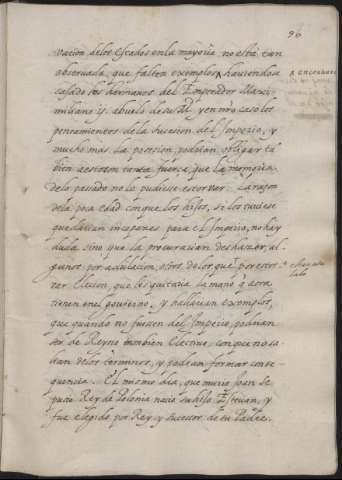 96
vacion delos Estados en la mayoria no està tan
observada, que falten exemplos, haviendose
casado los hermanos del Emperador Maxi-
miliano 2º. abuelo de su Mᵈ. y en nro caso los
pensamientos de la sucesion del Imperio, y
mucho mas la posesion, podrian obligar tã
bien a esto con tanta fuerça, que la memoria
de lo pasado no lo pudiesse estorvar. La razon
de la poca edad con que los hijos, si los tuviese
quedarian incapaces para el Imperio, no hay
duda sino que la procurarian deshazer, al
gunos por adulacion, otros de los que por estor
var Elecion, que les quitaria la mano q̃ aora
tienen en el govierno, y hallarian exemplos,
que quando no fuesen del Imperio podrian
ser de Reyno tambien Electivo, con que no sal
drian de los terminos, y podrian formar conse-
quencia. El mismo dia, que murio Joan Se
pusio Rey de Polonia nacio su hijo Estevan, y
fue elegido por Rey, y sucesor de su Padre.